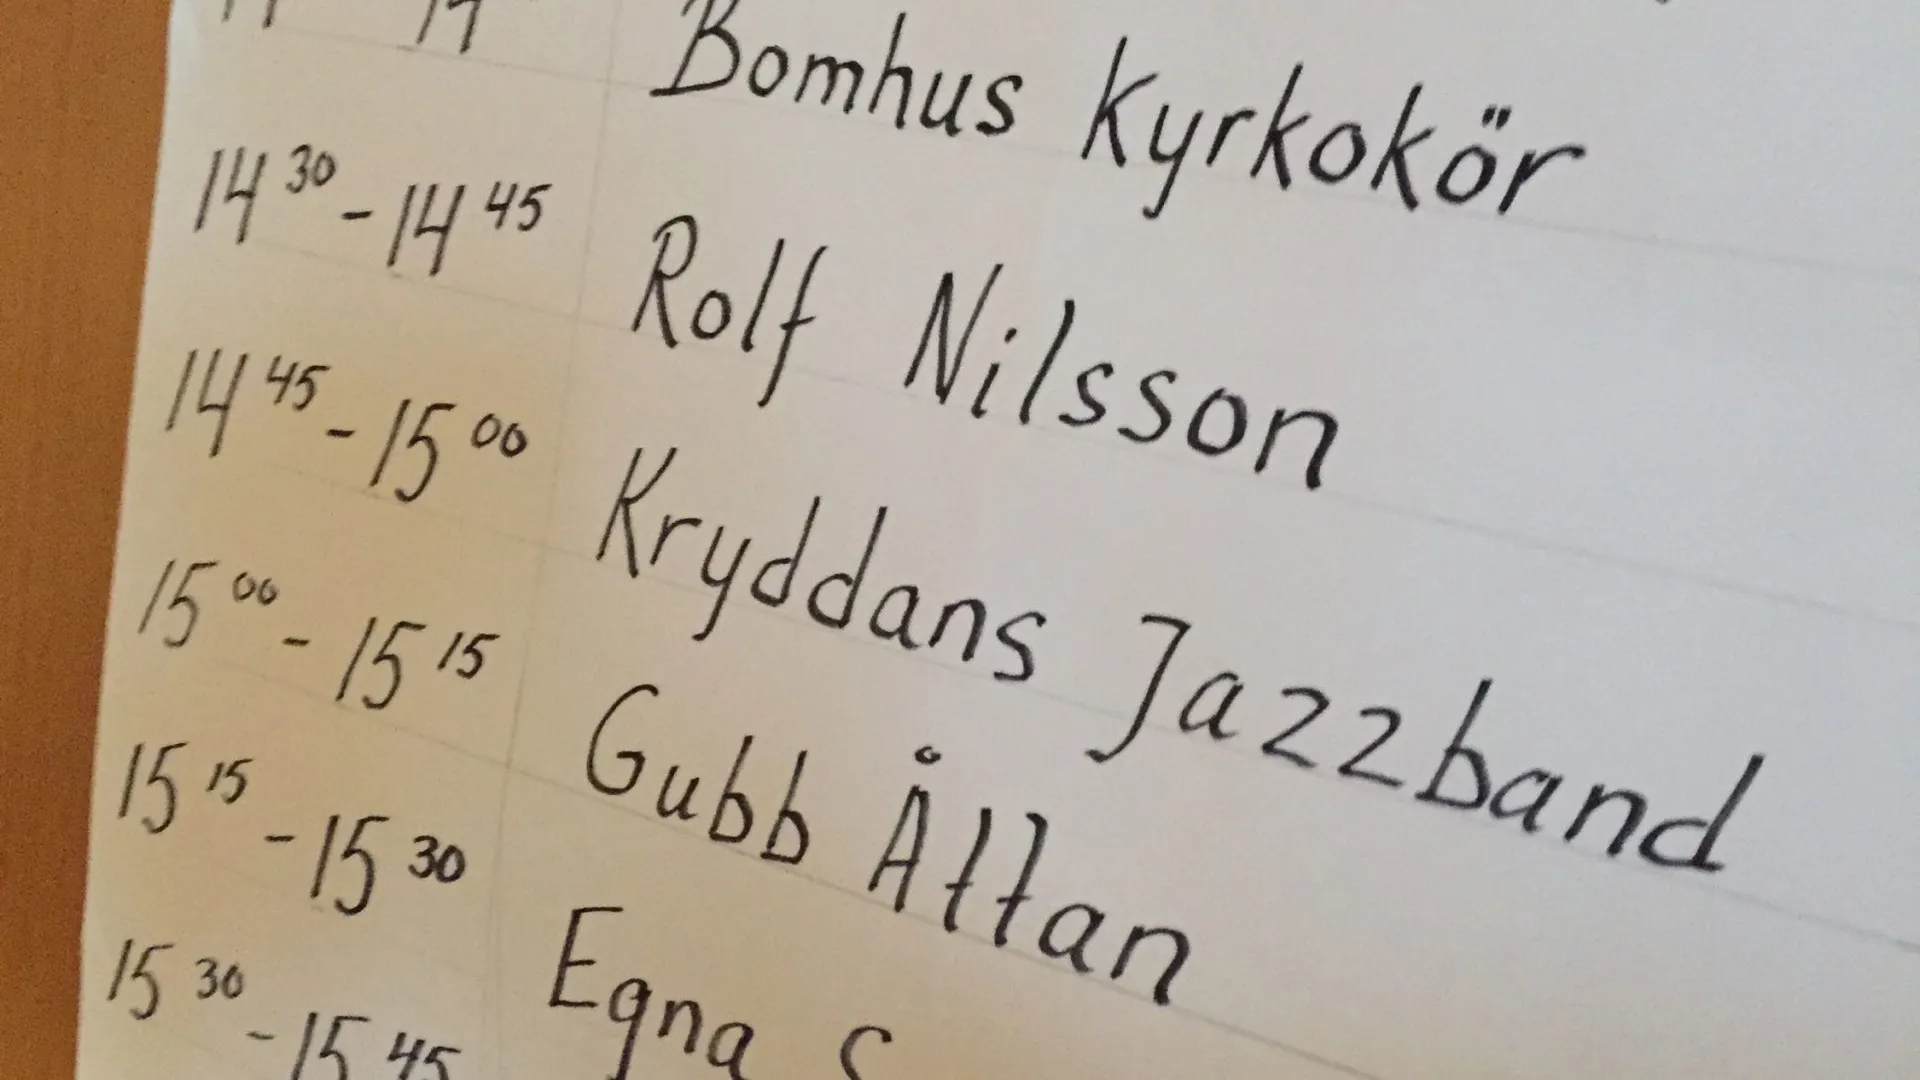 Bomhus Kyrkokör
14 30 - 14 45 Rolf Nilsson
14 45 - 15 00 Kryddans Jazzband
15 00 - 15 15 Gubb Åttan
15 15 - 15 30 Egna
15 30 - 15 45